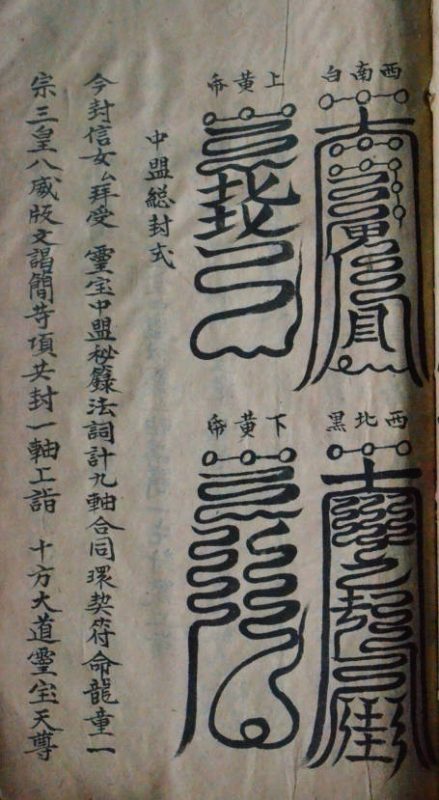 西南白
西北黑
上黃帝
下黃帝
中盟総封式
今封信女厶拜受 靈宝中盟秘籙法詞計九軸合同環契符命龍童二
宗三皇八威版文簡䓁項共封一軸上詣 十方大道靈宝天尊